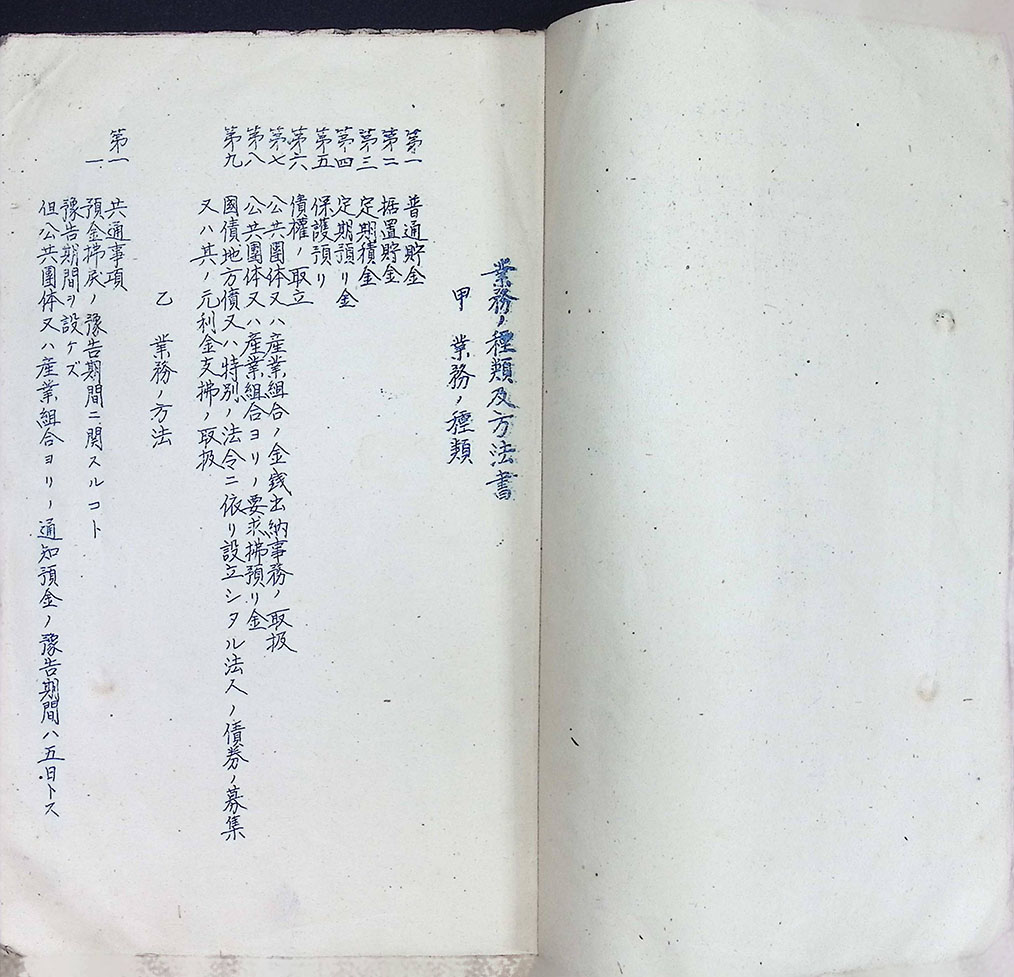 業務ノ種類及方法書
甲 業務ノ種類
第一 普通貯金
第二 据置貯金
第三 定期積金
第四 定期預リ金
第五 保護預リ
第六 債權ノ取立
第七 公共團体又ハ産業組合ノ金銭出納事務ノ取扱
第八 公共團体又ハ産業組合ヨリノ要求拂預リ金
第九 國債地方債又ハ特別ノ法令ニ依リ設立シタル法人ノ債券ノ募集
又ハ其ノ元利金支拂ノ取扱
乙 業務ノ方法
第一 共通事項
一 預金拂戻ノ豫告期間ニ関スルコト
豫告期間ヲ設ケズ
但公共團体又ハ産業組合ヨリノ通知預金ノ豫告期間ハ五日トス